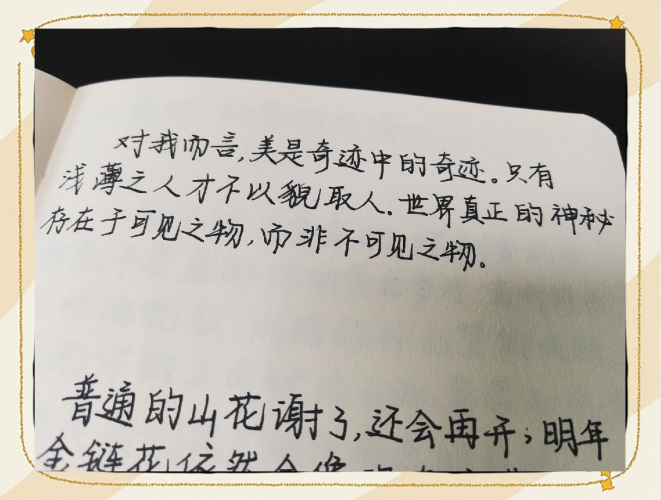 对我而言,美是奇迹中的奇迹。只有
浅薄之人才不以貌取人.世界真正的神秘
存在于可见之物,而非不可见之物。
普通的山花谢了,还会再开;明年
金链花依然会像